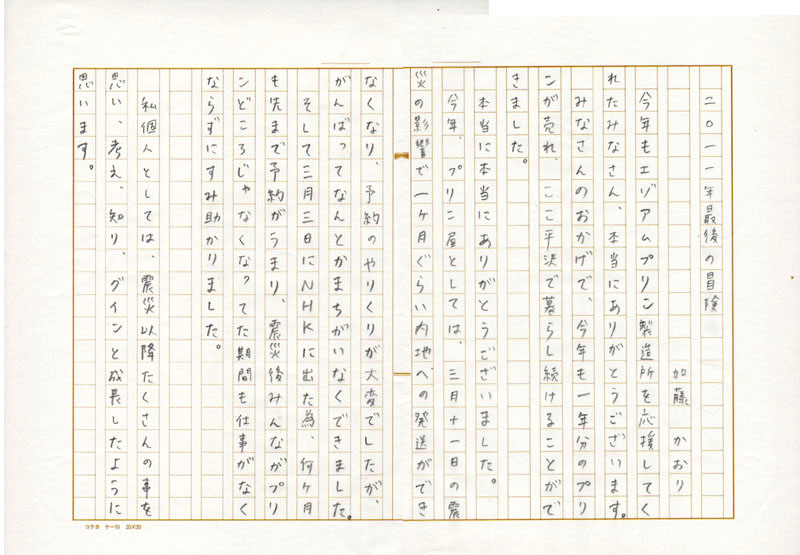 二〇一一年最後の冒険
加藤かおり
今年もエゾアムプリン製造所を応援してく
れたみなさん、本当にありがとうございます。
みなさんのおかげで、今年も一年分のプリ
ンが売れ、ここ平沢で暮らし続けることがで
きました。
本当に本当にありがとうございました。
今年、プリン屋としては、三月十一日の震
災の影響で一ヶ月ぐらい内地への発送ができ
なくなり、予約のやりくりが大変でしたが、
がんばってなんとかまちがいなくできました。
そして三月三日にNHKに出た為、何ヶ月
も先まで予約がうまり、震災後みんながプリ
ンどころじゃなくなってた期間も仕事がなく
ならずにすみ助かりました。
私個人としては、震災以降たくさんの事を
思い、考え、知り、グインと成長したように
思います。
コクヨ ケー10 20×20